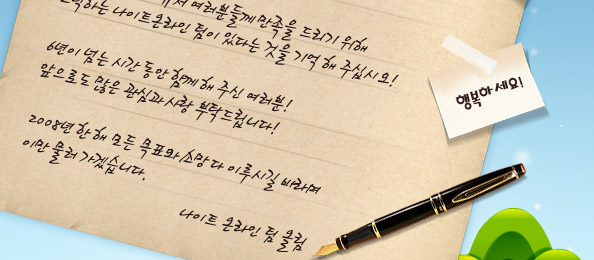 여러분들께 만족을 드리기 위해
노력하는 나이트 온라인 팀이 있다는 것을 기억해 주십시요!
6년이 넘는 시간 동안 함께 해 주신 여러분!
앞으로도 많은 관심과 사랑 부탁드립니다!
2008년 한해 모든 목표와 소망 다 이루시길 바라며
이만 물러 가겠습니다.
나이트 온라인 팀 올림
행복하세요!